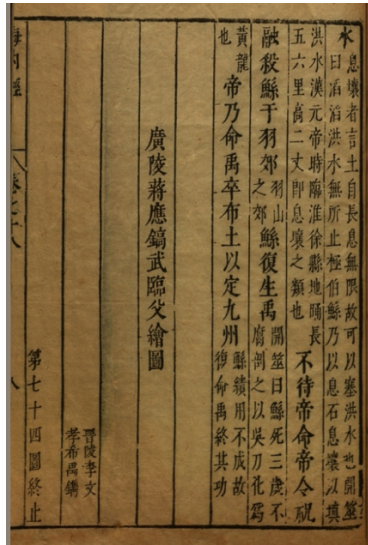 水息壤者言土自長息無限故可以塞洪水也開筮
曰滔滔洪水無所止極伯鯀乃以息石息壤以填
洪水漢元帝時臨淮徐縣地踊長
五六里高二丈即息壤之類也
不待帝命帝令祝
融殺鯀于羽郊
羽山
之郊
鯀復生禹
開筮曰鯀死三歲不
腐剖之以吳刀化爲
黃龍
也
帝乃命禹卒布土以定九州
鯀績用不成故
復命禹終其功
廣陵蔣應鎬武臨父繪圖
晉陵李文
孝希禹鐫
第七十四圖終止
海內經
卷之十八
八